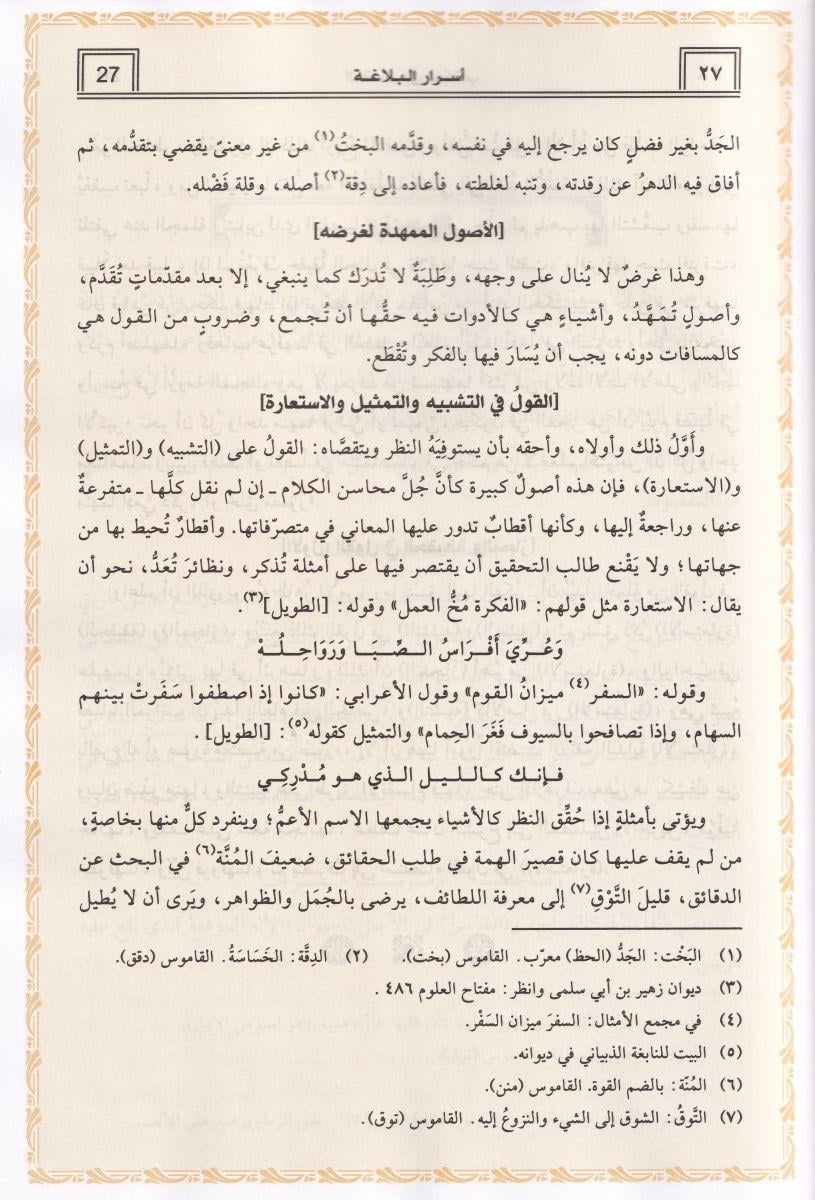 ٢٧
أسرار البلاغة
27
الجَدُّ بغير فضلٍ كان يرجع إليه في نفسه، وقدَّمه البختُ(١) من غير معنىً يقضي بتقدُّمه، ثم
أفاق فيه الدهرُ عن رقدته، وتنبه لغلطته، فأعاده إلى دِقة(٢) أصله، وقلة فَضْله.
[الأصول الممهدة لغرضه]
وهذا غرضٌ لا يُنال على وجهه، وطَلِبَةٌ لا تُدرَك كما ينبغي، إلا بعد مقدّماتٍ تُقَدَّم،
وأصولٍ تُمَهَّدُ، وأشياءٍ هي كالأدوات فيه حقُّها أن تُجمع، وضروبٍ من القول هي
كالمسافات دونه، يجب أن يُسَارَ فيها بالفكر وتُقْطَع.
[القولُ في التشبيه والتمثيل والاستعارة]
وأَوَّلُ ذلك وأولاه، وأحقه بأن يستوفيَهُ النظر ويتقصَّاه: القولُ على (التشبيه) و(التمثيل)
و(الاستعارة)، فإن هذه أصولٌ كبيرة كأنَّ جُلَّ محاسن الكلام ـ إن لم نقل كلَّها ـ متفرعةٌ
عنها، وراجعةٌ إليها، وكأنها أقطابٌ تدور عليها المعاني في متصرّفاتها. وأقطارٌ تُحيط بها من
جهاتها؛ ولا يَقْنع طالب التحقيق أن يقتصر فيها على أمثلة تُذكر، ونظائرَ تُعَدُّ، نحو أن
يقال: الاستعارة مثل قولهم: «الفكرة مُخُّ العمل» وقوله: [الطويل](٣).
وَعُرِّيَ أَفْرَاسُ الصِّبَا وَرَوَاحِلُهْ
وقوله: «السفر(٤) ميزانُ القوم» وقول الأعرابي: «كانوا إذ اصطفوا سَفَرَتْ بينهم
السهام، وإذا تصافحوا بالسيوف فَغَرَ الحِمام» والتمثيل كقوله(٥): [الطويل] .
فإنك كالليل الذي هو مُدْرِكِي
ويؤتى بأمثلةٍ إذا حُقِّق النظر كالأشياء يجمعها الاسم الأعمُّ؛ وينفرد كلٌّ منها بخاصةٍ،
من لم يقف عليها كان قصيرَ الهمة في طلب الحقائق، ضعيفَ المُنَّة(٦) في البحث عن
الدقائق، قليلَ التَّوْقِ(٧) إلى معرفة اللطائف، يرضى بالجُمَل والظواهر، ويَرى أن لا يُطيل
(١) البَخْت: الجَدُّ (الحظ) معرّب. القاموس (بخت). (٢) الدِقَّة: الخَسَاسَةُ. القاموس (دقق).
(٣) ديوان زهير بن أبي سلمى وانظر: مفتاح العلوم ٤٨٦ .
(٤) في مجمع الأمثال: السفرَ ميزان السَفْر.
(٥) البيت للنابغة الذبياني في ديوانه.
(٦) المُنّة: بالضم القوة. القاموس (منن).
(٧) التَّوقُ: الشوق إلى الشيء والنزوعُ إليه. القاموس (توق).